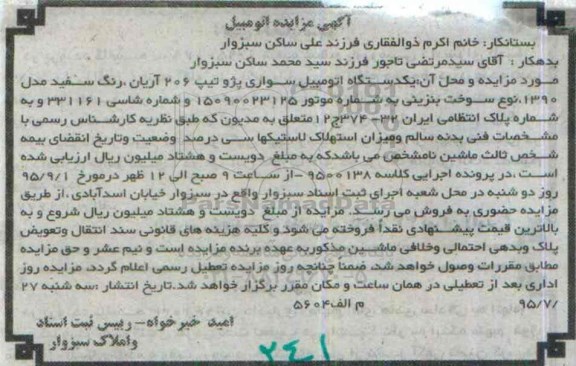 آگهی مزایده اتومبیل
بستانکار: خانم اکرم ذوالفقاری فرزند علی ساکن سبزوار
بدهکار : آقای سیدمرتضی تاجور فرزند سید محمد ساکن سبزوار
مورد مزایده و محل آن:یکدستگاه اتومبیل سواری پژو تیپ ۲۰۶ آریان ،رنگ سفید مدل
۱۳۹۰،نوع سوخت بنزینی به شماره موتور ۱۵۰۹۰۰۲۳۱۲۵ و شماره شاسی ۳۳۱۱۶۱ و به
شماره پلاک انتظامی ایران ۳۲-۳۷۴ج۱۲متعلق به مدیون که طبق نظریه کارشناس رسمی با
مشخصات فنی بدنه سالم ومیزان استهلاک لاستیکها سی درصد وضعیت وتاریخ انقضای بیمه
شخص ثالث ماشین نامشخص می باشدکه به مبلغ دویست و هشتاد میلیون ریال ارزیابی شده
است ،در پرونده اجرایی کلاسه ۹۵۰۰۱۳۸ -از ساعت ۹ صبح الی ۱۲ ظهر درمورخ ۹۵/۹/۱
روز دو شنبه در محل شعبه اجرای ثبت اسناد سبزوار واقع در سبزوار خیابان اسدآبادی ،از طریق
مزایده حضوری به فروش می رسد. مزایده از مبلغ دویست و هشتاد میلیون ریال شروع و به
بالاترین قیمت پیشنهادی نقداً فروخته می شود و کلیه هزینه های قانونی سند انتقال وتعویض
پلاک وبدهی احتمالی وخلافی ماشین مذکوربه عهده برنده مزایده است و نیم عشر و حق مزایده
مطابق مقررات وصول خواهد شد. ضمناً چنانچه روز مزایده تعطیل رسمی اعلام گردد، مزایده روز
اداری بعد از تعطیلی در همان ساعت و مکان مقرر برگزار خواهد شد.تاریخ انتشار :سه شنبه ۲۷
/۹۵/۷ م الف۵۶۰۴
امید خبرخواه- رییس ثبت اسناد
واملاک سبزوار
۲۴۱
ParsNamadData